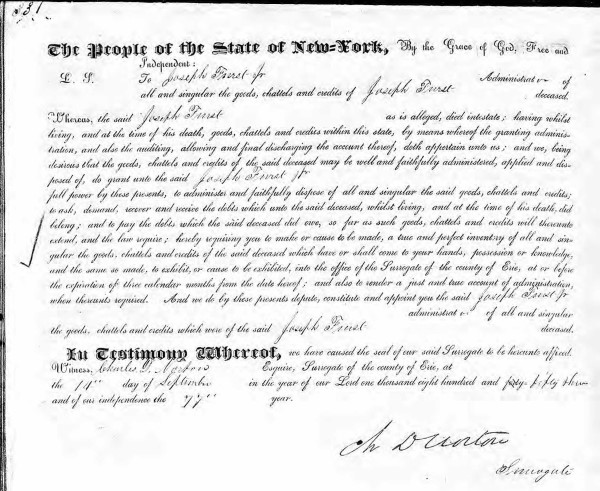 The People of the State of New-York, By the Grace of God, Free and
Independent:
L. S. To Joseph Furst Jr Administrator of
all and singular the goods, chattels and credits of Joseph Furst deceased.
Whereas, the said Joseph Furst as is alleged, died intestate; having whilst
living, and at the time of his death, goods, chattels and credits within this state, by means whereof the granting adminis-
tration, and also the auditing, allowing and final discharging the account thereof, doth appertain unto us; and we, being
desirous that the goods, chattels and credits of the said deceased may be well and faithfully administered, applied and dis-
posed of, do grant unto the said Joseph Furst Jr
full power by these presents, to administer and faithfully dispose of all and singular the said goods, chattels and credits;
to ask, demand, recover and receive the debts which unto the said deceased, whilst living, and at the time of his death, did
belong; and to pay the debts which the said deceased did owe, so far as such goods, chattels and credits will thereunto
extend, and the law require; hereby requiring you to make or cause to be made, a true and perfect inventory of all and sin-
gular the goods, chattels and credits of the said deceased which have or shall come to your hands, possession or knowledge,
and the same so made, to exhibit, or cause to be exhibited, into the office of the Surrogate of the county of Erie, at or before
the expiration of three calendar months from the date hereof; and also to render a just and true account of administration,
when thereunto required. And we do by these presents depute, constitute and appoint you the said Joseph Furst Jr
administrator of all and singular
the goods, chattels and credits which were of the said Joseph Furst deceased.
In Testimony Whereof, we have caused the seal of our said Surrogate to be hereunto affixed.
Witness, Charles D. Norton Esquire, Surrogate of the county of Erie, at
the 14th day of September in the year of our Lord one thousand eight hundred and forty fifty three
and of our independence the 77th year.
Ch D Norton
Surrogate